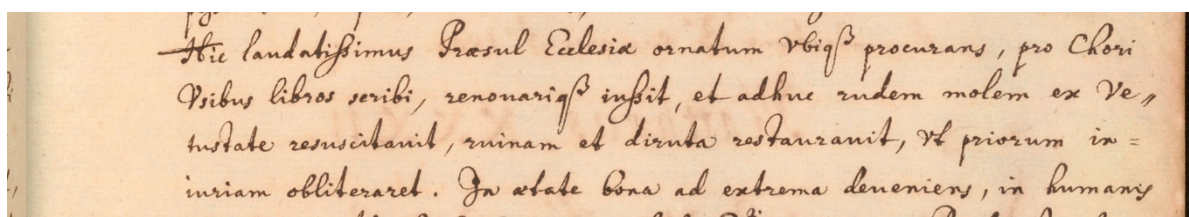 Hic laudatißimus Præsul Ecclesiæ ornatum vbiqꝫ procurans, pro Chori
Vsibus libros scribi, renouariqꝫ iußit, et adhuc rudem molem ex Ve〃
tustate resuscitauit, ruinam et diruta restaurauit, vt priorum in=
iuriam obliteraret. In ætate bona ad extrema deueniens, in humanis